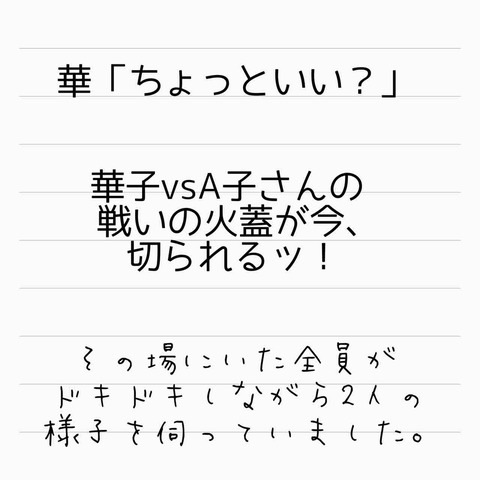 華「ちょっといい？」
華子vsA子さんの
戦いの火蓋が今、
切られるッ！
その場にいた全員が
ドキドキしながら2人の
様子を伺っていました。